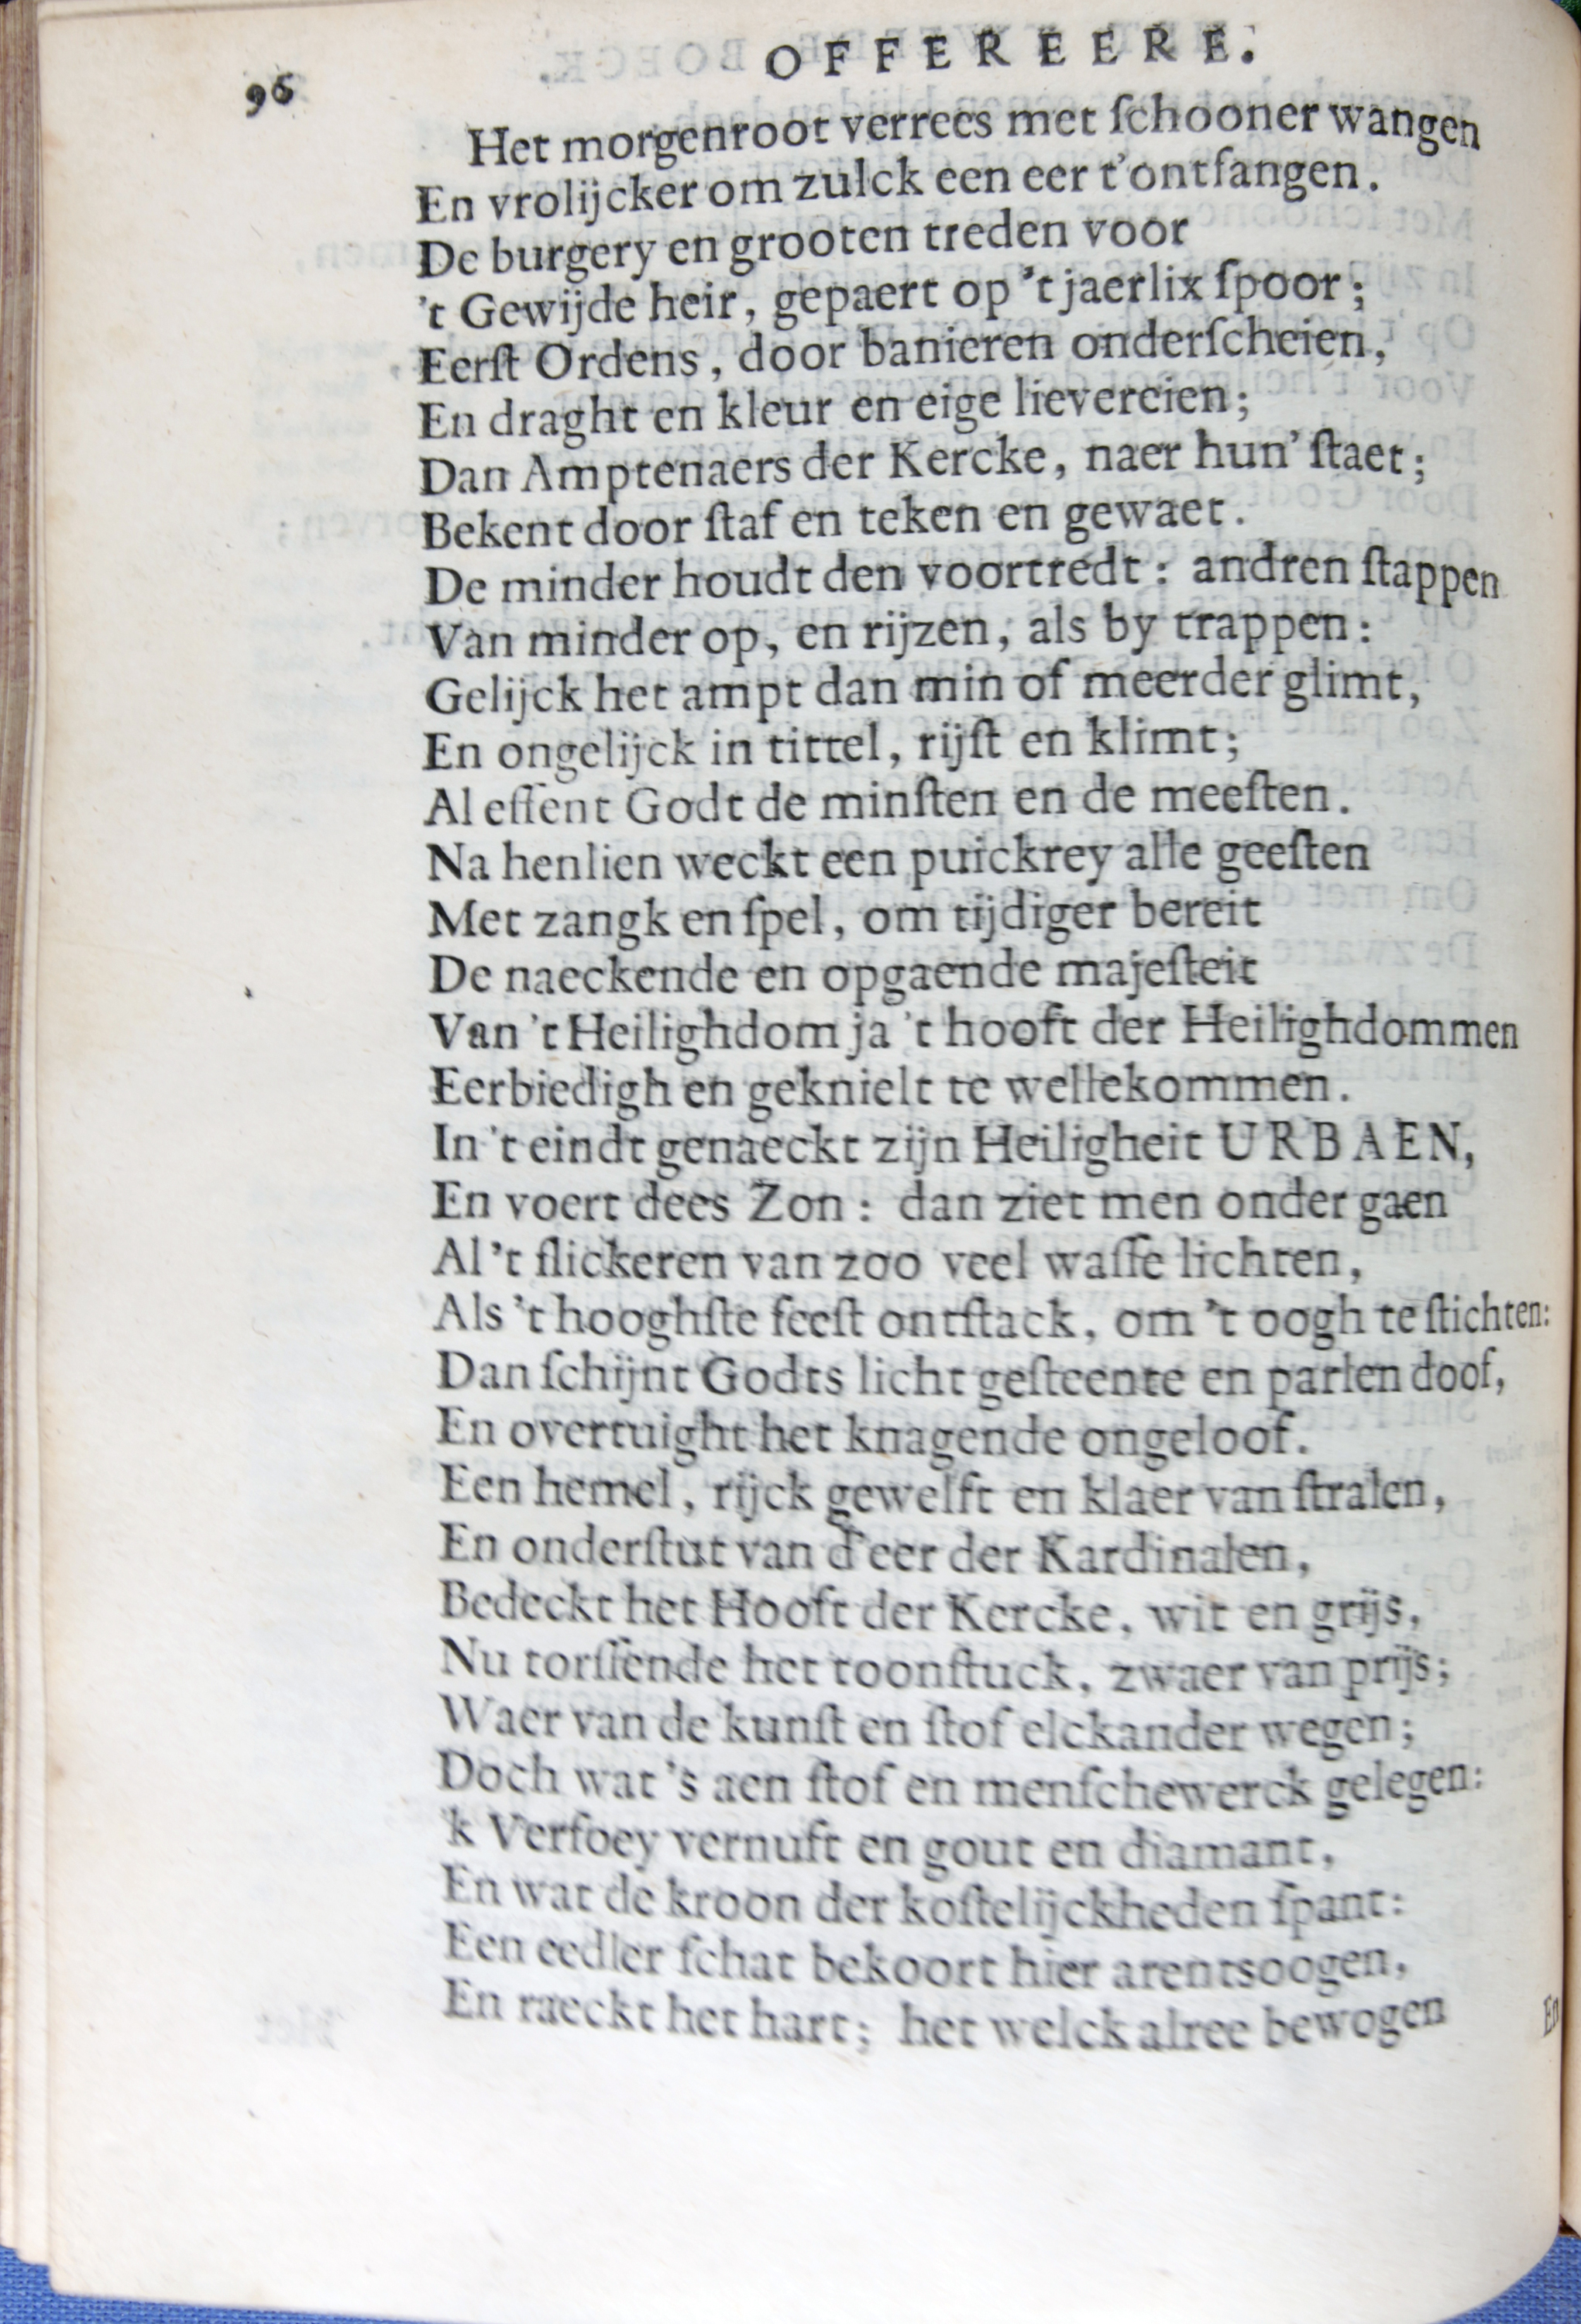 OFFEREERE.
96
Het morgenroot verrees met ſchooner wangen
En vrolijcker om zulck een eer t'ontfangen.
De burgery en grooten treden voor
't Gewijde heir, gepaert op 't jaerlix ſpoor;
Eerſt Ordens, door banieren onderſcheien,
En draght en kleur en eige lievereien;
Dan Amptenaers der Kercke, naer hun' ſtaet;
Bekent door ſtaf en teken en gewaet.
De minder houdt den voortredt: andren ſtappen
Van minder op, en rijzen, als by trappen:
Gelijck het ampt dan min of meerder glimt,
En ongelijck in tittel, rijſt en klimt;
Al effent Godt de minſten en de meeſten.
Na henlien weckt een puickrey alle geeſten
Met zangk en ſpel, om tijdiger bereit
De naeckende en opgaende majeſteit
Van 't Heilighdom ja 't hooft der Heilighdommen
Eerbiedigh en geknielt te wellekommen.
In 't eindt genaeckt zijn Heiligheit URBAEN,
En voert dees Zon: dan ziet men onder gaen
Al 't flickeren van zoo veel waſſe lichten,
Als 't hooghſte feeſt ontſtack, om 't oogh te ſtichten:
Dan ſchijnt Godts licht geſteente en parlen doof,
En overtuight het knagende ongeloof.
Een hemel, rijck gewelft en klaer van ſtralen,
En onderſtut van d'eer der Kardinalen,
Bedeckt het Hooft der Kercke, wit en grijs,
Nu torſſende het toonſtuck, zwaer van prijs;
Waer van de kunſt en ſtof elckander wegen;
Doch wat 's aen ſtof en menſchewerck gelegen:
'k Verfoey vernuft en gout en diamant,
En wat de kroon der koſtelijckheden ſpant:
Een eedler ſchat bekoort hier arentsoogen,
En raeckt het hart; het welck alree bewogen
En